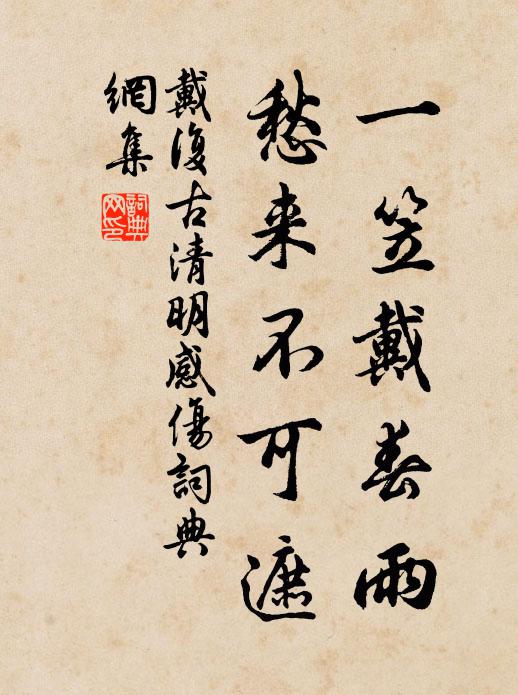 一笠戴春雨
愁来不可遮
戴復古清明感傷詞典
網集
詞典网印